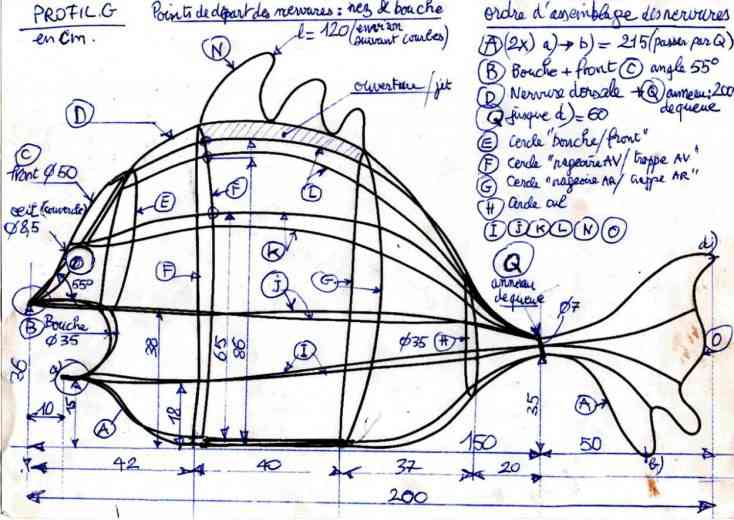 PROFIL.G
en cm.
Points de départ des nervures : nez & bouche
l = 120 (environ
suivant courbes)
ordre d'assemblage des nervures
A (2x) a) → b) = 215 (passer par Q)
B Bouche + front C angle 55°
D Nervure dorsale → Q anneau: 200
de queue
Q jusque d) = 60
E Cercle "bouche/front"
F Cercle "nageoire AV/trappe AV"
G Cercle "nageoire AR/trappe AR"
H Cercle cul
I J K L N O
N
ouverture/jet
D
C
front Ø50
oeil (couvercle)
Ø8,5
E
F
L
K
J
F
G
55°
Q
anneau
de queue
Ø7
d)
O
B Bouche
Ø35
Ø35 H
I
a)
A
A
36
15
38
18
65
86
35
10
150
50
b)
42
40
37
20
200